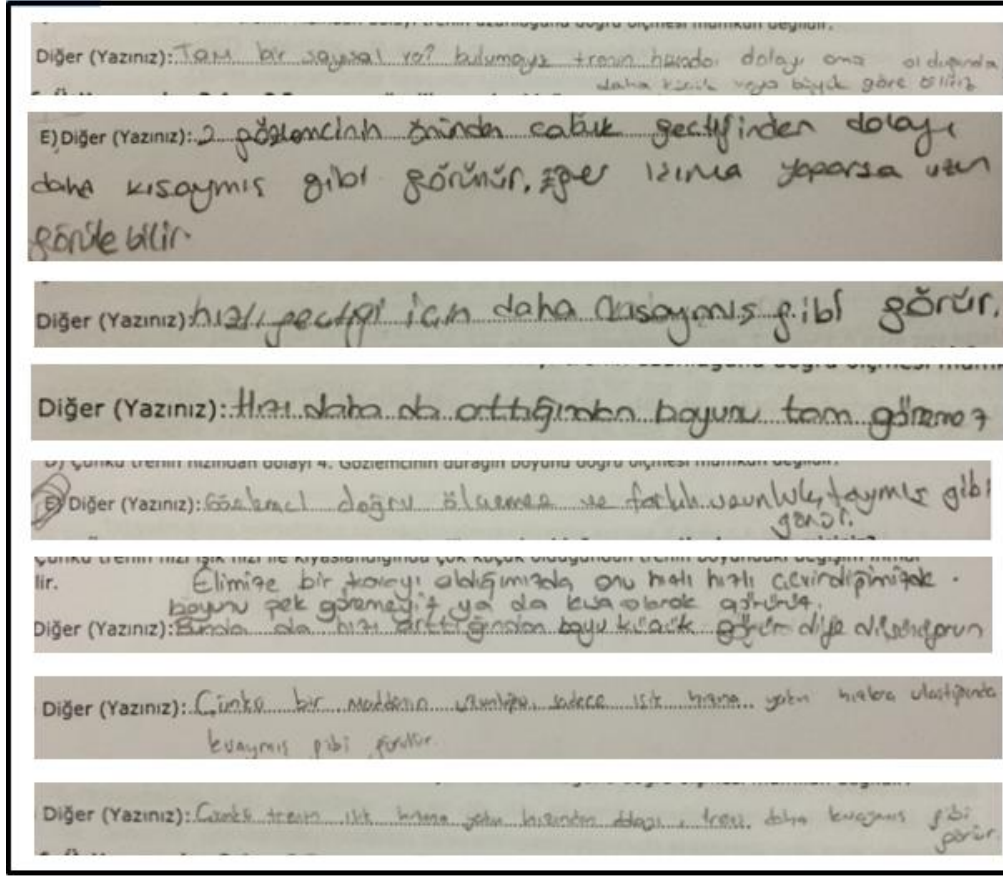 Diğer (Yazınız): Tam bir sayısal bulumayız trenin hızından dolayı ama olduğunda
daha küçük veya büyük göre biliriz
E) Diğer (Yazınız): 2 gözlemcinin önünden cabuk gectiğinden dolayı
daha kısaymış gibi görünür. Eğer yaparsa uzun
görüle bilir.
Diğer (Yazınız): hızlı geçtiği için daha kısaymış gibi görür.
Diğer (Yazınız): Hızı daha da arttığından boyunu tam göremez
D) Çünkü trenin hızından dolayı 4. Gözlemcinin durağın boyunu doğru ölçmesi mümkün değildir.
E) Diğer (Yazınız): Gözlemci doğru ölçemez ve farklı uzunluktaymış gibi
görür.
Çünkü trenin hızı ışık hızı ile kıyaslandığında çok küçük olduğundan trenin boyundaki değişim ihmal
lir. Elimize bir aldığımızda onu hızlı hızlı çevirdiğimizde
boyunu pek göremeyiz ya da kısa olarak görürüz.
Diğer (Yazınız): Bunda da hızı arttığından boyu küçük görür diye düşünüyorum
Diğer (Yazınız): Çünkü bir maddenin uzunluğu sadece ışık hızına yakın hızlara ulaştığında
kısaymış gibi görülür.
Diğer (Yazınız): Çünkü trenin ışık hızına yakın hızından dolayı, treni daha kısaymış gibi
görür.